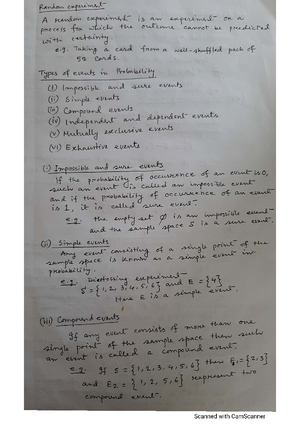 Random experiment
A random experiment is an experiment or a
process for which the outcome cannot be predicted
with certainty.
e.g. Taking a card from a well-shuffled pack of
52 cards.
Types of events in Probability
(i) Impossible and sure events
(ii) Simple events
(iii) Compound events
(iv) Independent and dependent events
(v) Mutually exclusive events
(vi) Exhaustive events
(i) Impossible and sure events
If the probability of occurrence of an event is 0,
such an event is called an impossible event
and if the probability of occurrence of an event
is 1, it is called sure event.
e.g. the empty set φ is an impossible event
and the sample space S is a sure event.
(ii) Simple events
Any event consisting of a single point of the
sample space is known as a simple event in
probability.
e.g. Die tossing experiment
S = {1, 2, 3, 4, 5, 6} and E = {4}
Here E is a simple event.
(iii) Compound events
If any event consists of more than one
single point of the sample space then such
an event is called a compound event.
e.g. If S = {1, 2, 3, 4, 5, 6} then E1 = {2, 3}
and E2 = {1, 2, 5, 6} represent two
compound event.
Scanned with CamScanner